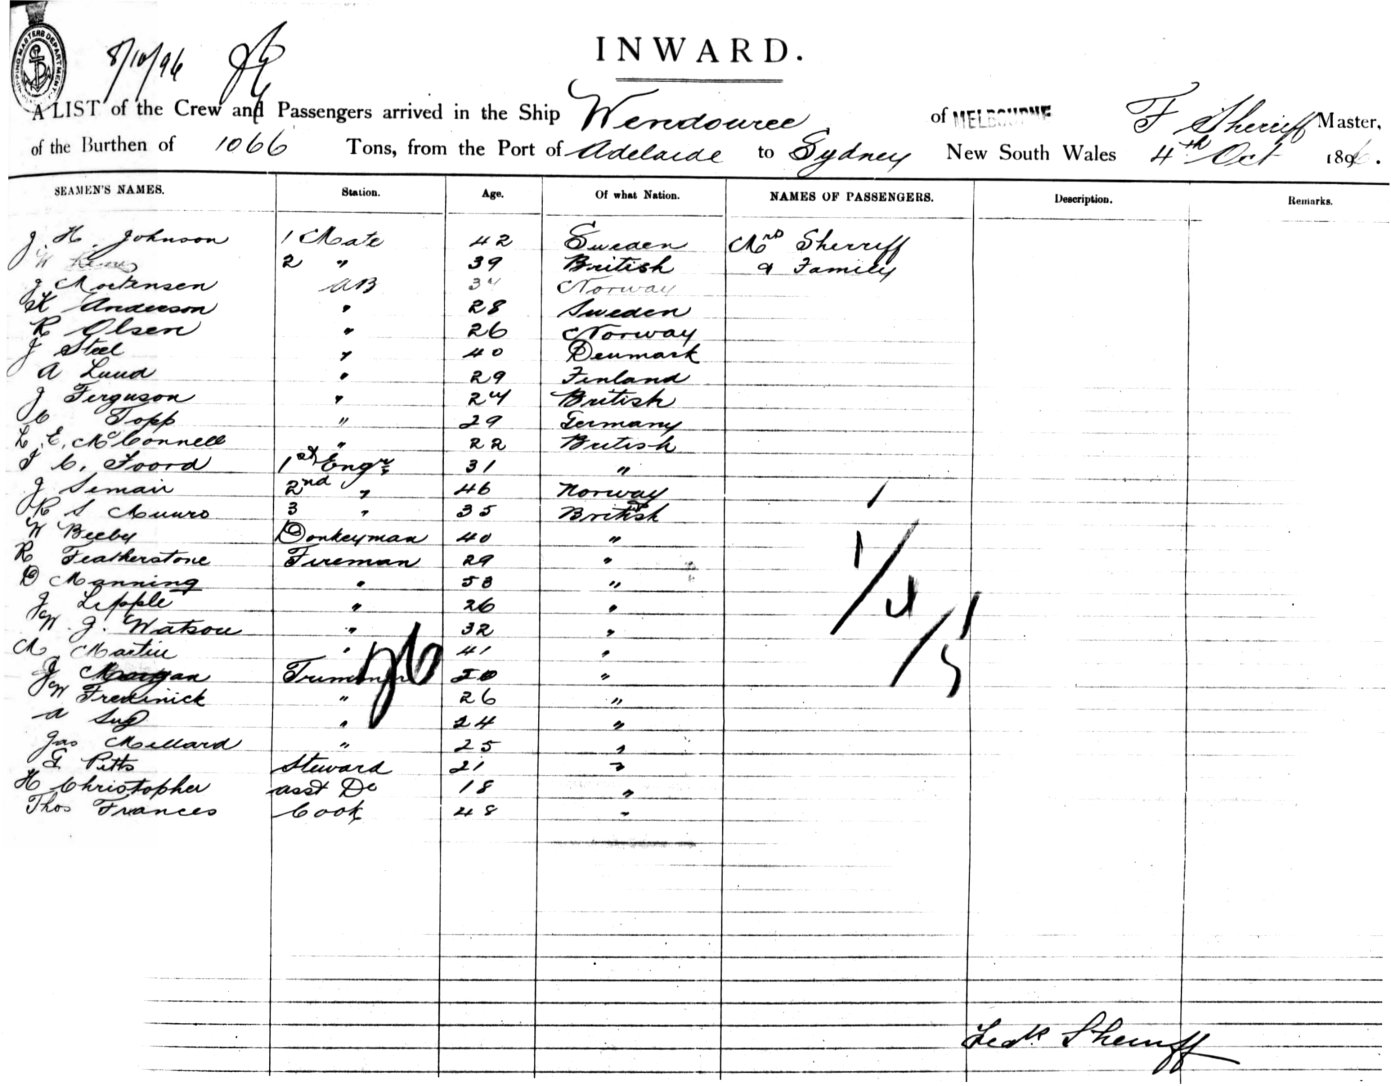 SHIPPING MASTERS DEPARTMENT
8/10/96
INWARD.
A LIST of the Crew and Passengers arrived in the Ship Wendouree of MELBOURNE F Sherriff Master,
of the Burthen of 1066 Tons, from the Port of Adelaide to Sydney New South Wales 4th Oct 1896.
SEAMEN'S NAMES. Station. Age. Of what Nation. NAMES OF PASSENGERS. Description. Remarks.
J. H. Johnson 1 Mate 42 Sweden Mrs Sherriff
W 2 " 39 British & Family
J Mortensen AB 34 Norway
K Anderson " 28 Sweden
R Olsen " 26 Norway
J Steel " 40 Denmark
A Lund " 29 Finland
J Ferguson " 24 British
C Topp " 29 Germany
L E. McConnell " 22 British
F C. Foord 1st Engr 31 "
J 2nd " 46 Norway
R S Munro 3 " 35 British
W Beeby Donkeyman 40 "
R Featherstone Fireman 29 "
D Manning " 53 "
J Lipple " 26 "
W. J. Watson " 32 "
M Martin " 41 "
J Morgan Trimmer 20 "
W Frederick " 26 "
A " 24 "
Jas Millard " 25 "
F Pitts Steward 21 "
H Christopher asst Do 18 "
Thos Frances Cook 48 "
1
1/4
1/5
Fredk Sherriff